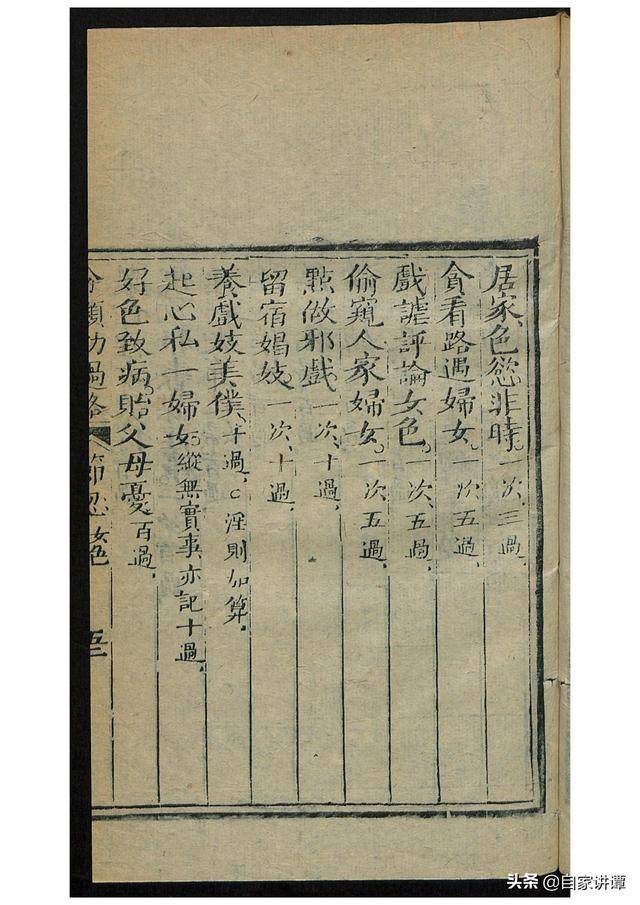 居家色慾非時。一次、三過、
貪看路遇婦女。一次五過、
戲謔評論女色。一次、五過、
偷窺人家婦女。一次五過、
點做邪戲、一次、十過、
留宿娼妓。一次、十過、
養戲妓美僕。十過、淫則加算、
起心私一婦女。縱無實事、亦記十過、
好色致病。貽父母憂。百過、
分類功過格 節忍 女色
头条 @自家讲谭